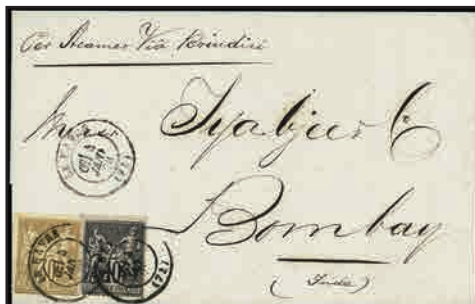 Per Steamer Via Brindisi
Messrs Tyabjee & Co
Bombay
(Inde)
LE HAVRE
40
(72)